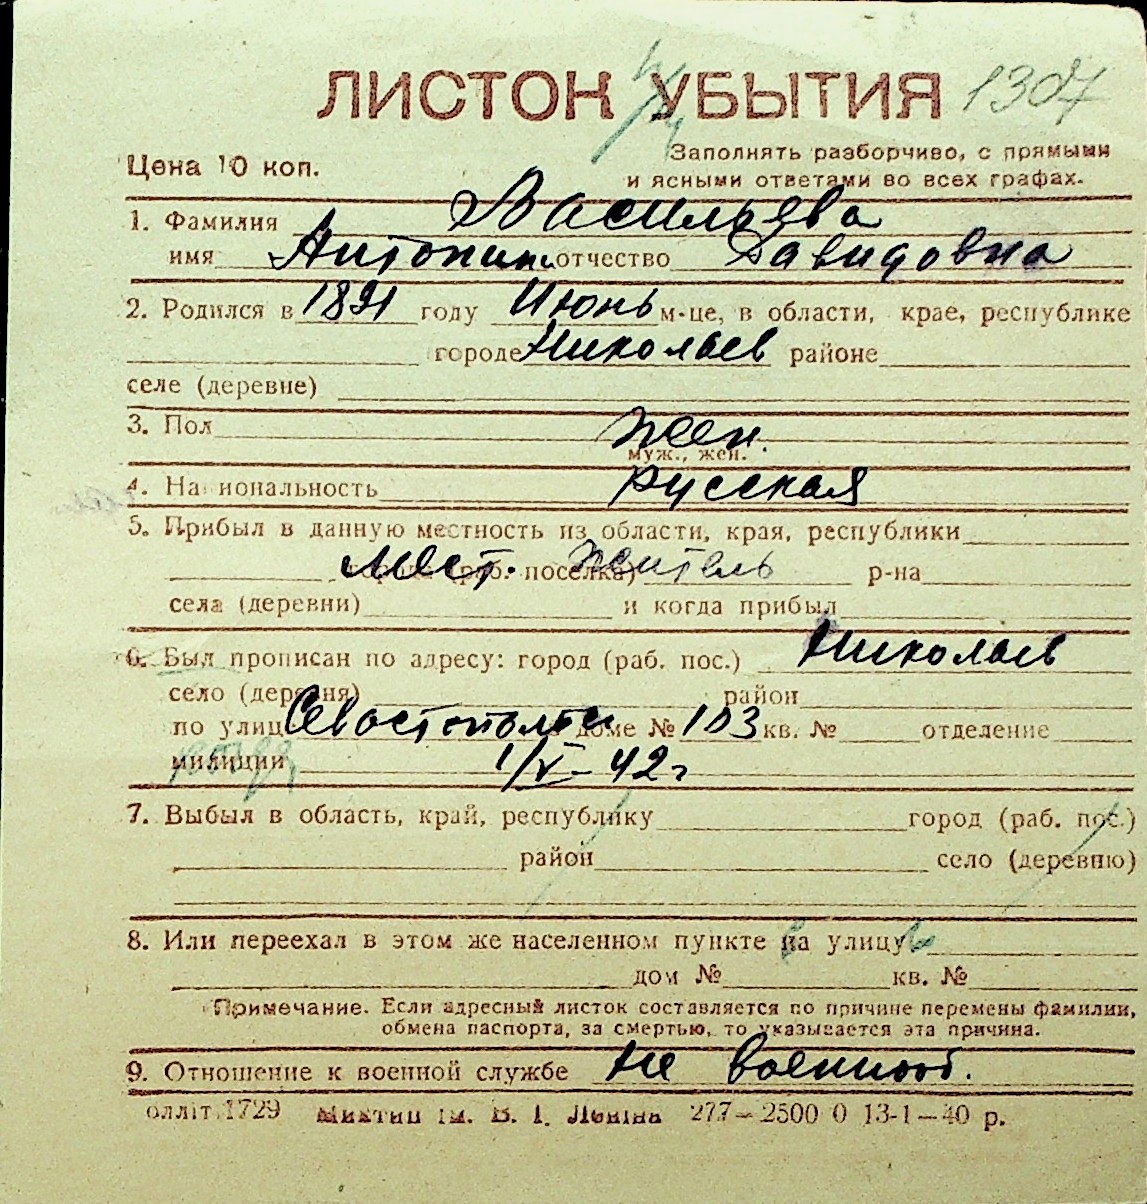 ЛИСТОК УБЫТИЯ 1307
Цена 10 коп.
Заполнять разборчиво, с прямыми
и ясными ответами во всех графах.
1. Фамилия Васильева
имя Антонина отчество Давидовна
2. Родился в 1891 году Июнь м-це, в области, крае, республике
городе Николаев районе
селе (деревне)
3. Пол Жен.
муж., жен.
4. Национальность русская
5. Прибыл в данную местность из области, края, республики
города (раб. поселка) мест. житель р-на
села (деревни) и когда прибыл
6. Был прописан по адресу: город (раб. пос.) Николаев
село (деревня) район
по улице Севастопольск доме № 103 кв. № отделение
милиции 1/V-42 г
7. Выбыл в область, край, республику город (раб. пос.)
район село (деревню)
8. Или переехал в этом же населенном пункте на улицу
дом № кв. №
Примечание. Если адресный листок составляется по причине перемены фамилии,
обмена паспорта, за смертью, то указывается эта причина.
9. Отношение к военной службе Не военнооб.
оллiт 1729 Миктип iм. В. I. Ленiна 277—2500 0 13-1—40 р.